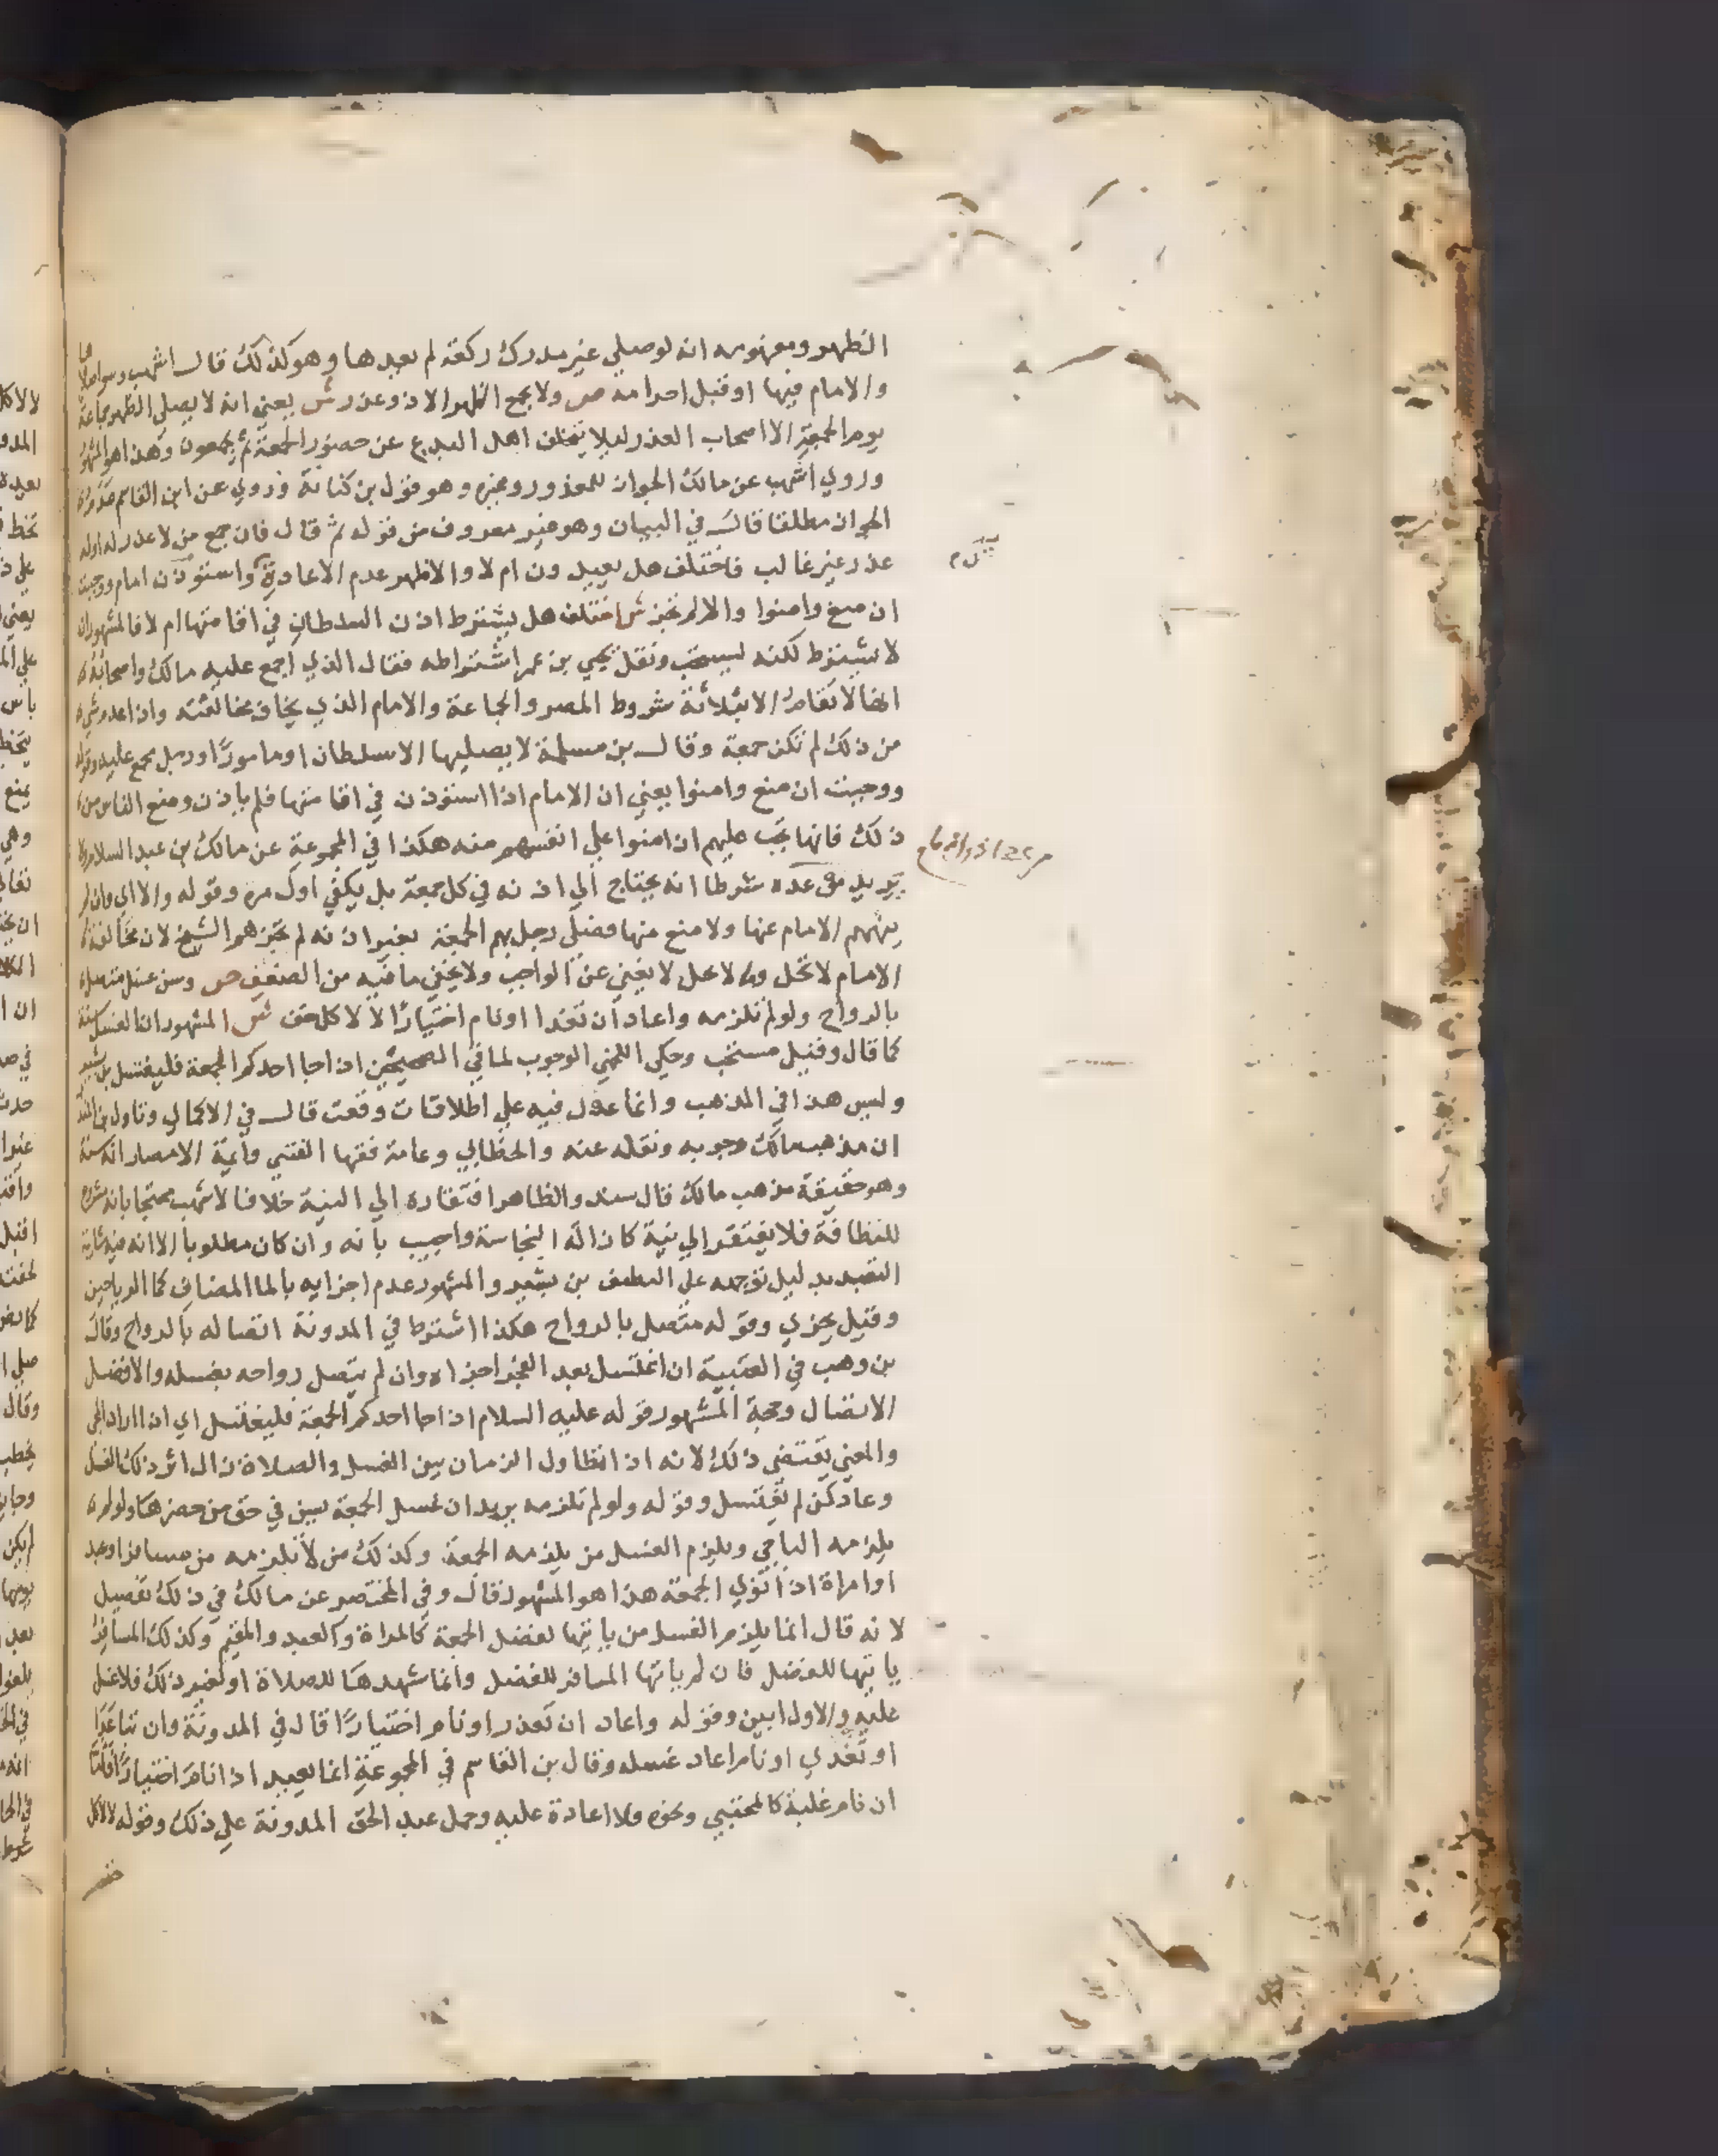 الظهر ومفهومه انه لوصلي غير مدرك ركعة لم يعدها وهو كذلك قال اشهب وسواصلاها
والامام فيها او قبل احرامه ص ولا يجمع الظهر الا ذو عذر ش يعني انه لا يصلي الظهر جماعة
يوم الجمعة الا اصحاب العذر ليلا يتخلف اهل البدع عن حضور الجمعة ثم يجمعون وهذا هو المشهور
وروي اشهب عن مالك الجواز للمعذور وغيره وهو قول بن كنانة وروي عن ابن القاسم
الجواز مطلقا قال في البيان وهو غير معروف من قوله ثم قال فان جمع من لا عذر له اوله
عذر غير غالب فاختلف هل يعيدون ام لا والاظهر عدم الاعادة واستوذن امام ووجبت
ان منع وامنوا والا لم تجز ش اختلف هل يشترط اذن السلطان في اقامتها ام لا فالمشهور ان
لا يشترط لكنه يستحب ونقل يحيي بن عمر اشتراطه فقال الذي اجمع عليه مالك واصحابه
انها لا تقام الا بثلاثة شروط المصر والجماعة والامام الذي يخاف مخالفته واذا عدم شي
من ذلك لم تكن جمعة وقال بن مسلمة لا يصليها الا سلطان او مامورا او رجل مجمع عليه وقوله
ووجبت ان منع وامنوا يعني ان الامام اذا استوذن في اقامتها فلم ياذن ومنع الناس من
ذلك فانها تجب عليهم ان امنوا علي انفسهم منه هكذا في المجموعة عن مالك بن عبد السلام ولا
يريد من عده شرطا انه يحتاج الي اذنه في كل جمعة بل يكفي اول مرة وقوله والا اي وان لم
ينههم الامام عنها ولا منع منها فصلي رجل بهم الجمعة بغير اذنه لم تجزهم الشيخ لان مخالفة
الامام لا تحل وما لا يحل لا يغني عن الواجب ولا يخفي ما فيه من الضعف ص وسن غسل متصل
بالرواح ولو لم تلزمه واعاد ان تغدا او نام اختيارا لا لاكل خف ش المشهور ان الغسل سنة
كما قال وقيل مستحب وحكي اللخمي الوجوب لما في الصحيحين اذا جا احدكم الجمعة فليغتسل بن بشير
وليس هذا في المذهب وانما عول فيه علي اطلاقات وقعت قال في الاكمال وتاول بن المنذر
ان مذهب مالك وجوبه ونقله عنه والخطابي وعامة فقها الفتيي وايمة الامصار انه سنة
وهو حقيقة مذهب مالك قال سند والظاهر افتقاره الي النية خلافا لاشهب محتجا بانه شرع
للنظافة فلا يفتقر الي نية كازالة النجاسة واجيب بانه وان كان مطلوبا الا انه فيه شايبة
التعبد بدليل توجهه علي النظيف بن بشير والمشهور عدم اجزايه بالما المضاف كما الرياحين
وقيل يجزي وقوله متصل بالرواح هكذا اشترط في المدونة اتصاله بالرواح وقال
بن وهب في العتبية ان اغتسل بعد الفجر اجزاه وان لم يتصل رواحه بغسله والافضل
الاتصال وحجة المشهور قوله عليه السلام اذا جا احدكم الجمعة فليغتسل اي اذا اراد المجي
والمعني يقتضي ذلك لانه اذا تطاول الزمان بين الغسل والصلاة زال اثر ذلك الغسل
وعاد كمن لم يغتسل وقوله ولو لم تلزمه يريد ان غسل الجمعة يسن في حق من حضرها ولو لم
يلزمه الباجي ويلزم الغسل من يلزمه الجمعة وكذلك من لا تلزمه من مسافر او عبد
او امراة اذا اتوي الجمعة هذا هو المشهور قال وفي المختصر عن مالك في ذلك تفصيل
لانه قال انما يلزم الغسل من ياتيها لفضل الجمعة كالمراة والعبد والمقيم وكذلك المسافر
ياتيها للفضل فان لم ياتها المسافر للفضل وانما شهدها للصلاة او لغير ذلك فلا غسل
عليه والاول ابين وقوله واعاد ان تعذر او نام اختيارا قال في المدونة وان تباعد
او تغدي او نام اعاد غسله وقال بن القاسم في المجموعة انما يعيد اذا نام اختيارا فاما
ان نام غلبة كالمحتبي ونحوه فلا اعادة عليه وحمل عبد الحق المدونة علي ذلك وقوله لا لاكل